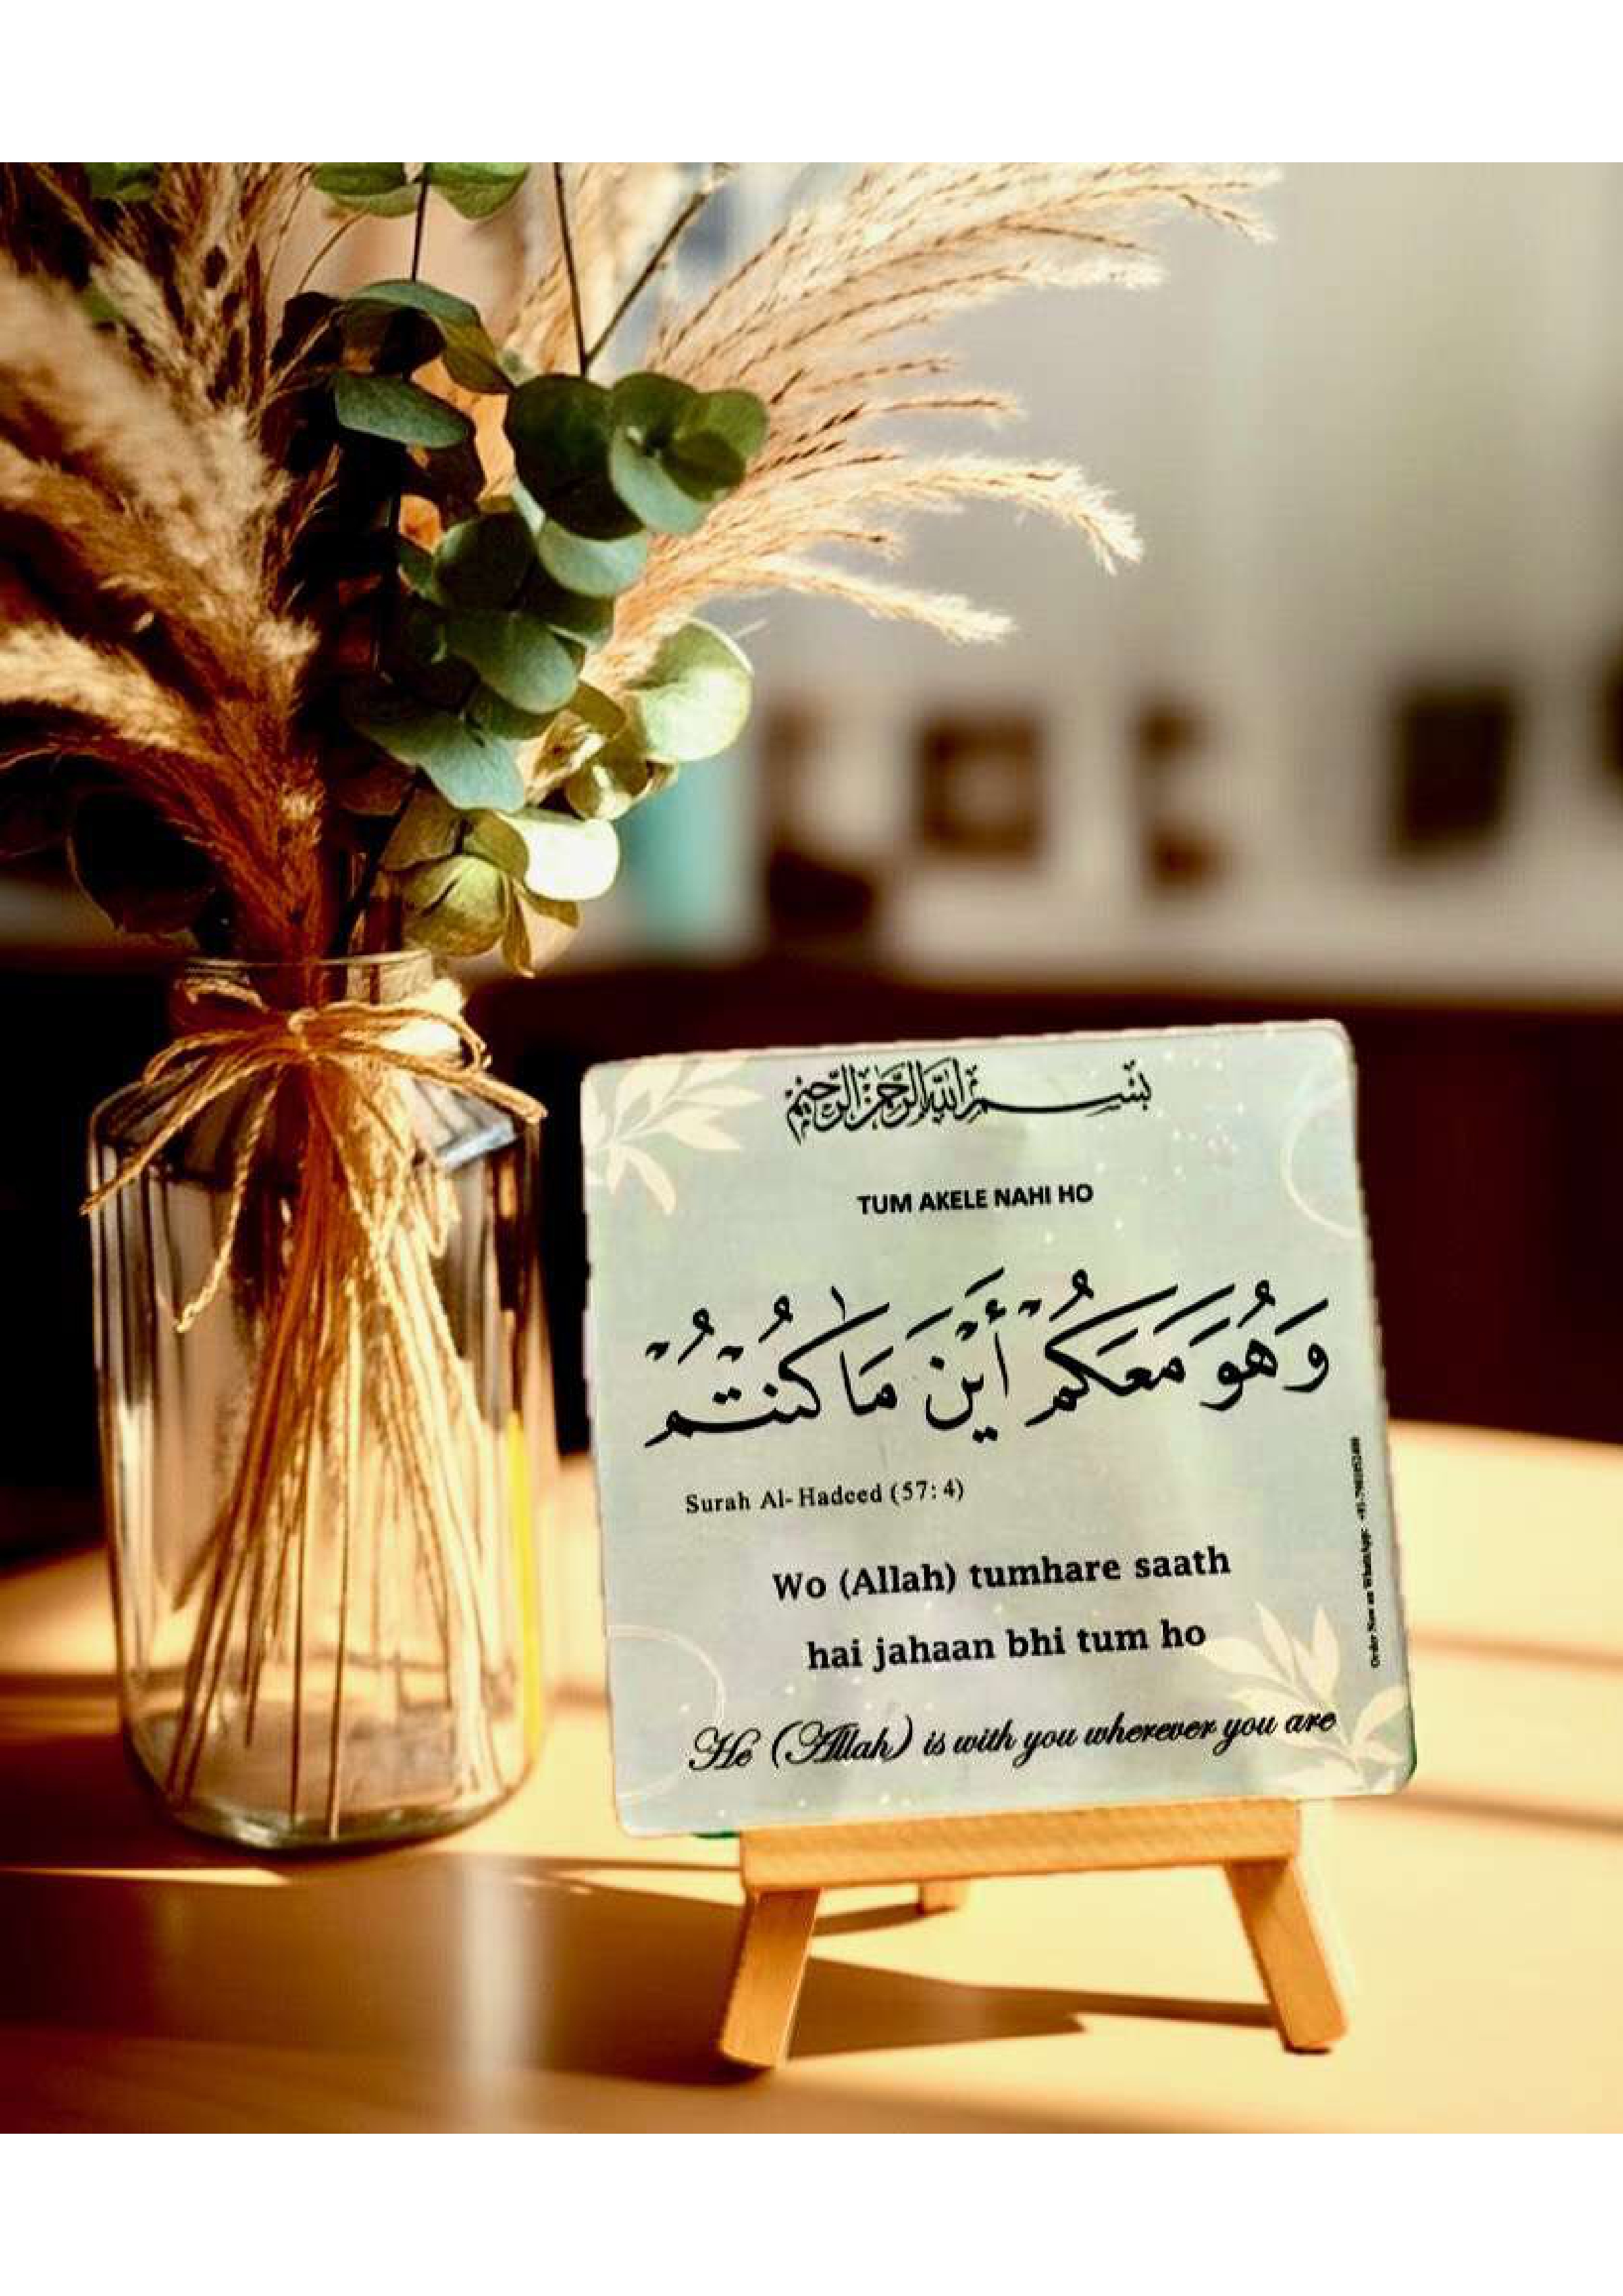 بسم الله الرحمن الرحيم
TUM AKELE NAHI HO
وَهُوَ مَعَكُمْ أَيْنَ مَا كُنْتُمْ
Surah Al-Hadeed (57:4)
Wo (Allah) tumhare saath
hai jahaan bhi tum ho
He (Allah) is with you wherever you are
Order Now on WhatsApp: